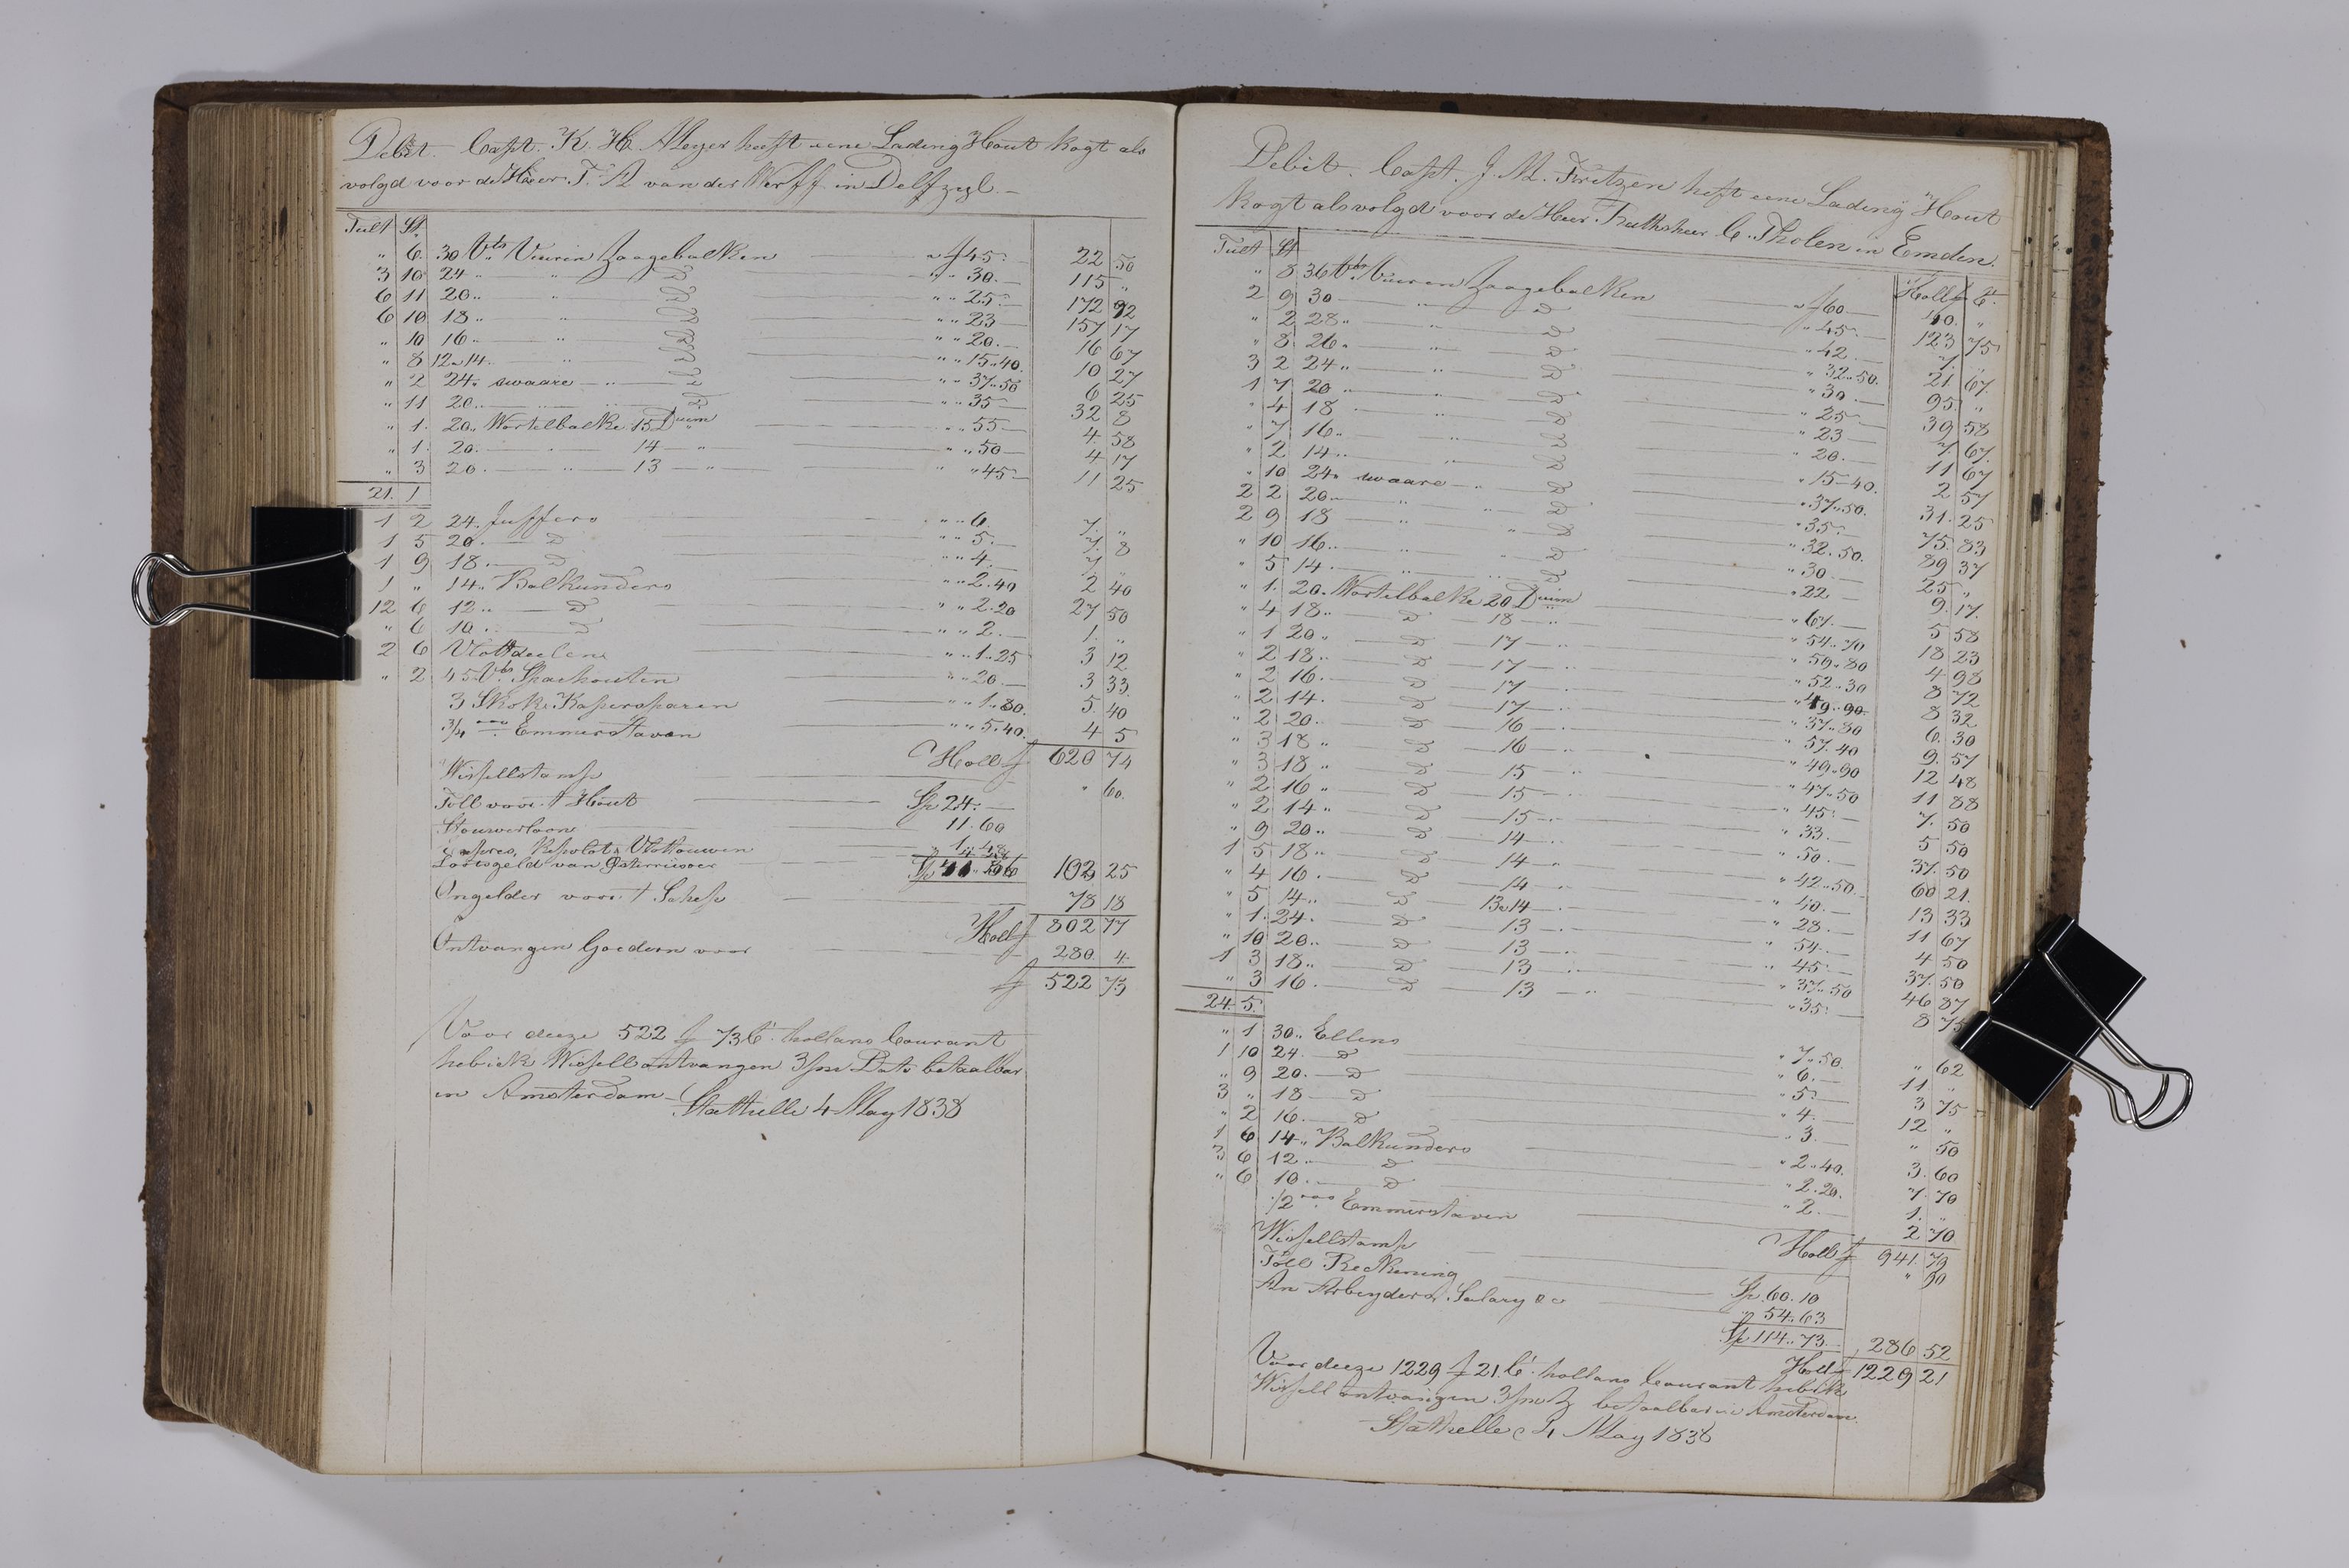 Debit. Capt. K. H. Meyer heft eene Lading Hout kogt als
volgd voor de Heer T. A. van der Werff in Delfzyl.
Tult St.
" 6. 30 Vts Vuuren Zaagebalken " f 45. 22 50
3 10 24 " " D " " 30. 115 "
6 11 20 " " D " " 25. 172 92
6 10 18 " " D " " 23 157 17
" 10 16 " " D " " 20. 16 67
" 8 12 a 14 " D " " 15.40. 10 27
" 2 24 " swaare " D " " 37.50 6 25
" 11 20 " " " D " " 35 32 8
" 1. 20 " Wortelbalke 15 Duim " " 55 4 58
" 1. 20 " " 14 " " " 50 4 17
" 3 20 " " 13 " " " 45 11 25
21. 1
1 2 24. Juffers " " 6. 7. "
1 5 20. D " " 5. 7. 8
1 9 18. D " " 4. 7 "
1 " 14. Balkunders " " 2.40 2 40
12 6 12 " D " " 2.20 27 50
" 6 10 " D " " 2. 1. "
2 6 Vlottdeelen " " 1.25 3 12
" 2 45 Vts Sparhouten " " 20. 3 33
3 Skok Kaspersparen " " 1.80. 5. 40
3/4 Emmerstaven " " 5.40. 4 5
Holl f 620 74
Wissellstamp " 60.
Toll voor t Hout Sp 24.
Stouwerloon 11.60
Lootsgeld van 102 25
Ongelder voor t Schip 78 18
Holl f 802 77
Ontvangen Goederen voor 280. 4.
f 522 73
Voor deeze 522 f 73 Ct. hollans Courant
heb ick Wissell ontvangen 3/m Dato betaalbar
in Amsterdam
Stathelle 4 May 1838
Debit. Capt. J. M. Fritzen heft eene Lading Hout
kogt als volgd voor de Heer Rathsheer C. Tholen in Emden.
Tult St Holl f Ct.
" 8 36 Vts Vuuren Zaagebalken " f 60. 40. "
2 9 30 " D " 45. 123 75
" 2 28 " " D " 42 7. "
" 8 26 " " D " 32.50. 21. 67
3 2 24 " " D " 30. 95. "
1 7 20 " D " 25 39 58
" 4 18 " D " 23 7. 67.
" 7 16 " " D " 20. 11 67
" 2 14 " " D " 15.40. 2 57
" 10 24 " swaare " D " 37.50. 31. 25
2 2 20 " " D " 35. 75. 83
2 9 18 " " D " 32.50. 89 37
" 10 16 " " D " 30. 25 "
" 5 14 " " D " 22. 9. 17.
" 1. 20. Wortelbalke 20 Duim " 67. 5 58
" 4 18 " D 18 " " 54.70 18 23
" 1 20 " D 17 " " 59.80 4 98
" 2 18 " D 17 " " 52.30 8 72
" 2 16. D 17 " " 49.90. 8 32
" 2 14. D 17 " " 37.80 6. 30
" 2 20. D 16 " " 57.40 9. 57
" 3 18 " D 16 " " 49.90 12 48
" 3 18 " D 15 " " 47.50 11 88
" 2 16 " D 15 " " 45. 7. 50
" 2 14 " D 15 " " 33. 5 50
" 9 20 " D 14 " " 50. 37. 50
1 5 18 " D 14 " " 42.50. 60 21.
" 4 16. D 14 " " 40. 13 33
" 5 14 " D 13 a 14 " " 28. 11 67
" 1. 24. D 13 " " 54. 4 50
" 10 20 " D 13 " " 45. 37. 50
1 3 18 " D 13 " " 37.50 46 87
" 3 16. D 13 " " 35. 8 75
24. 5.
" 1 30 " Ellens " 7.50. " 62
1 10 24. D " 6. 11 "
" 9 20. D " 5. 3 75
3 " 18 D " 4. 12 "
" 2 16. D " 3. " 50
1 6 14 " Balkunders " 2.40. 3. 60
3 6 12 " D " 2.20. 7. 70
" 6 10 " D " 2. 1. "
1/2 Emmerstaven 2 70
Holl f 941. 79
Wissellstamp " 90
Toll Reckening Sp. 60.10
An Arbeyders, Salary &c " 54.63
Sp 114.73. 286 52
Holl f 1229 21
Voor deeze 1229 f 21. Ct. hollans Courant heb ik
Wissell ontvangen 3/m betaalbar in Amsterdam.
Stathelle May 1838